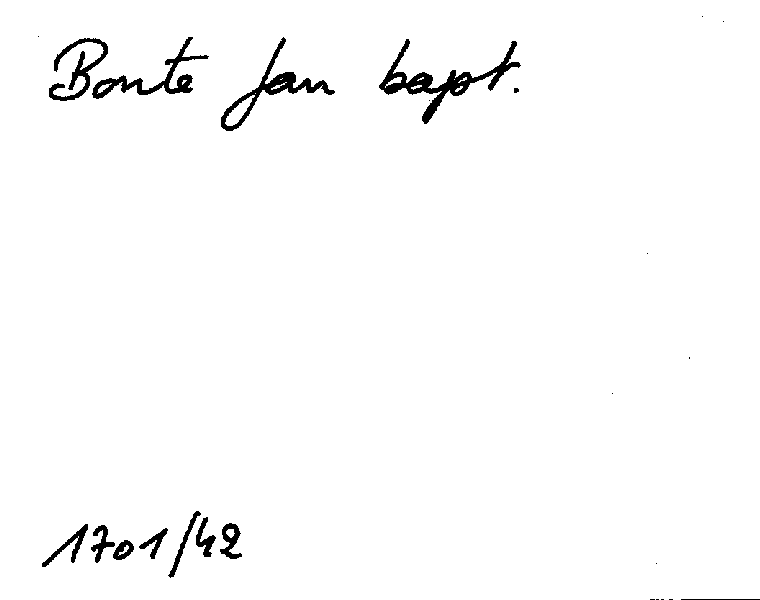 Bonte Jan bapt.
1701/42